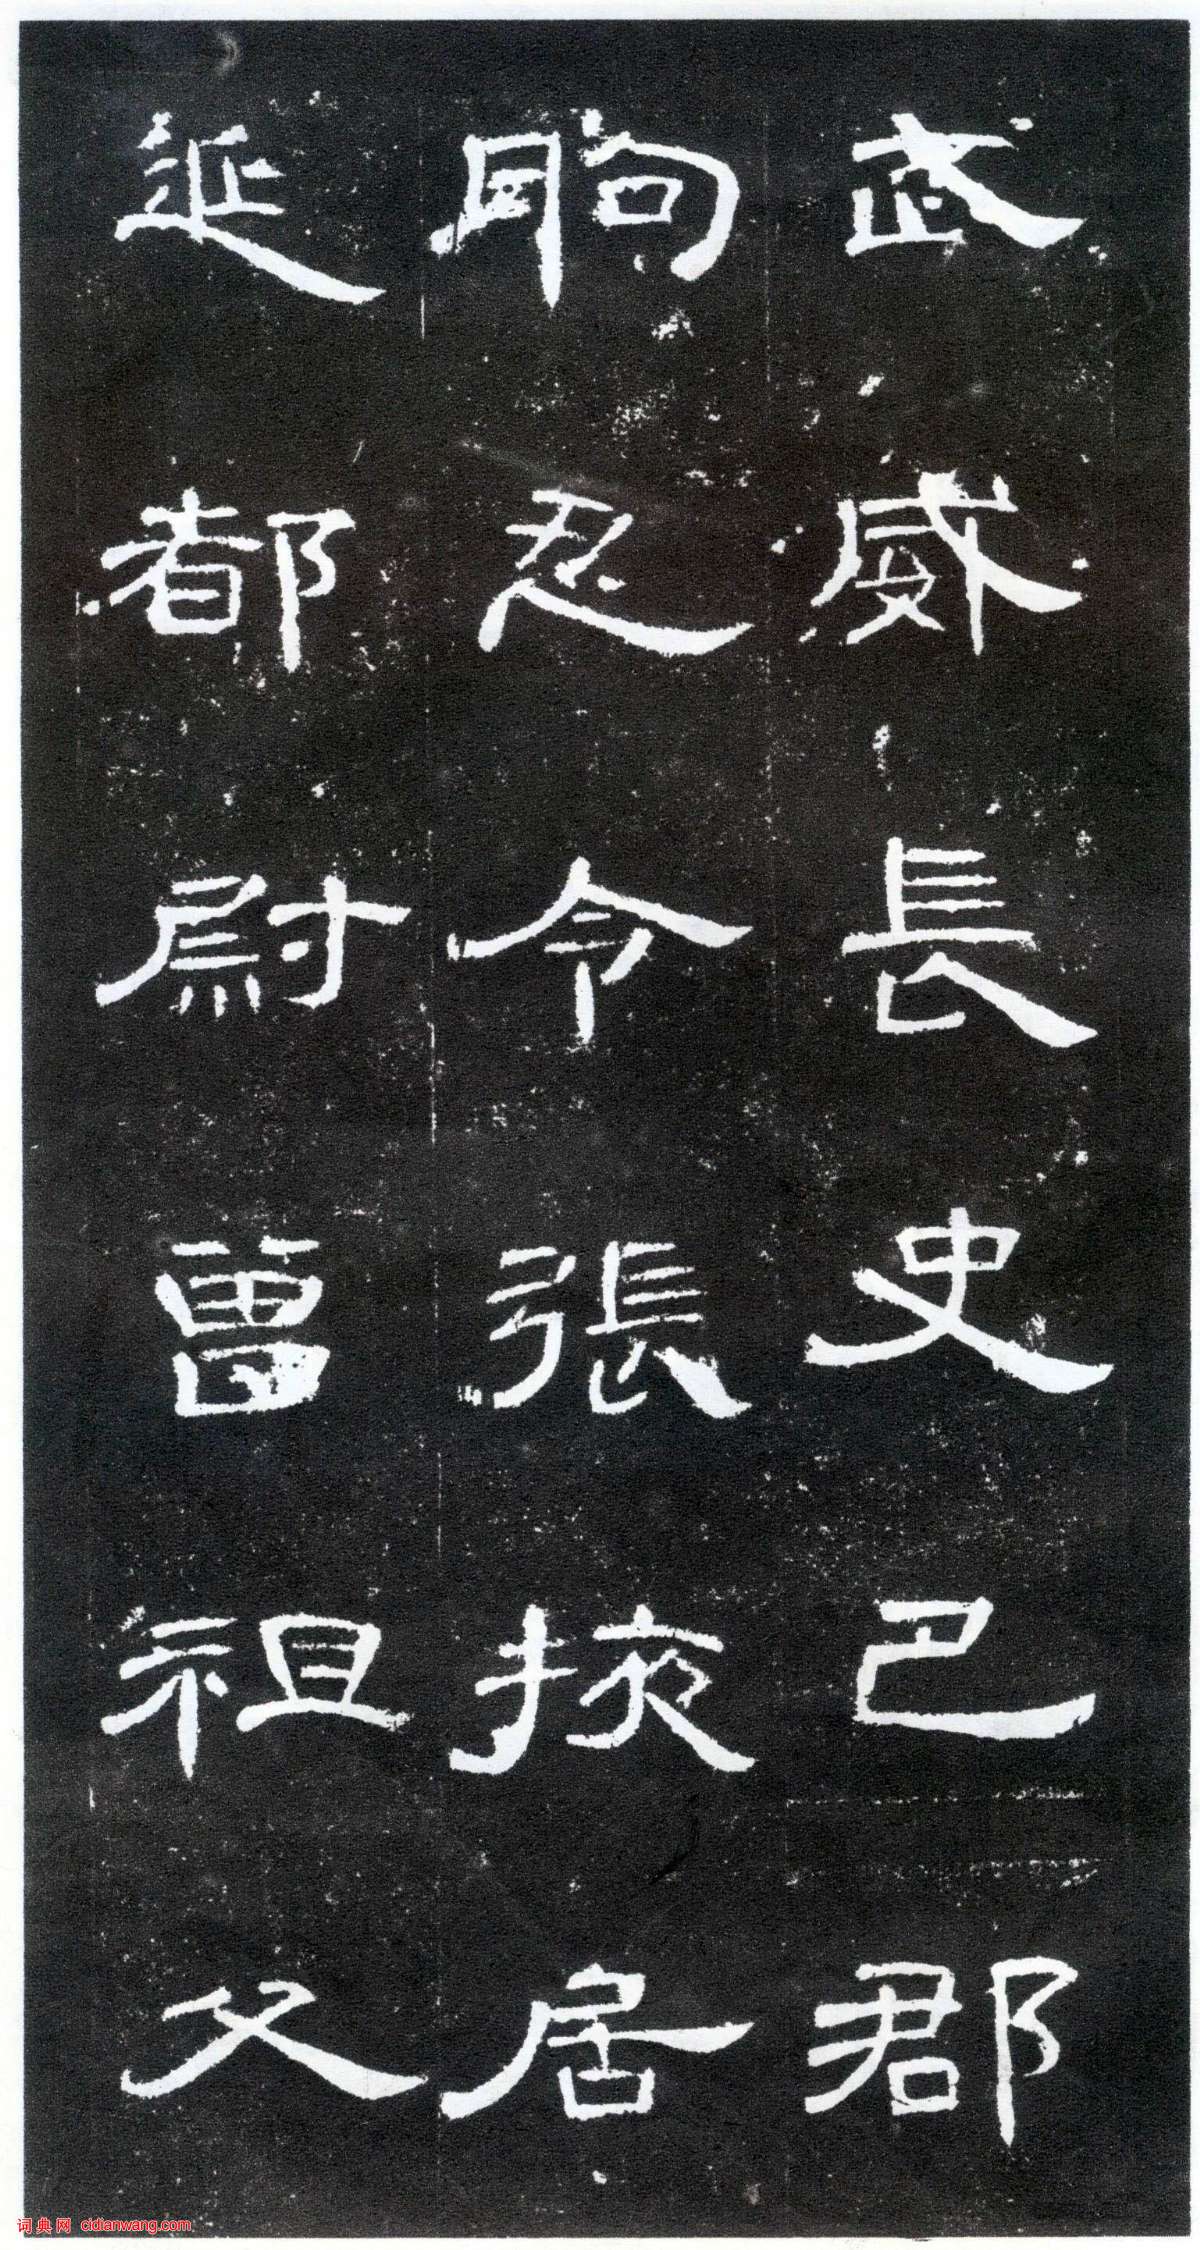 武威長史巴郡
朐忍令張掖居
延都尉曹祖父
词典网 cidianwang.com